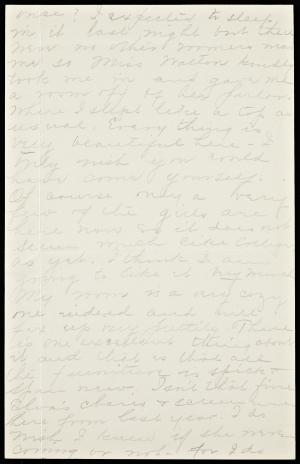 once? I expected to sleep
in it last night but there
were no other roomers near
me so Miss Walton kindly
took me in and gave me
a room off of her parlor.
Where I slept like a top as
usual. Every thing is
very beautiful here - I
only wish you could
have come yourself.
Of course only a very
few of the girls are
here now so it does not
seem much like college
as yet. I think I am
going to like it very much
My room is a very cozy
one indeed and will
fix up very prettily. There
is one excellent thing about
it and that is that all
the furniture is spick &
span new. Isn't that fine
Elva's chairs & screen were
here from last year. I do
wish I knew if she were
coming or not. for I do